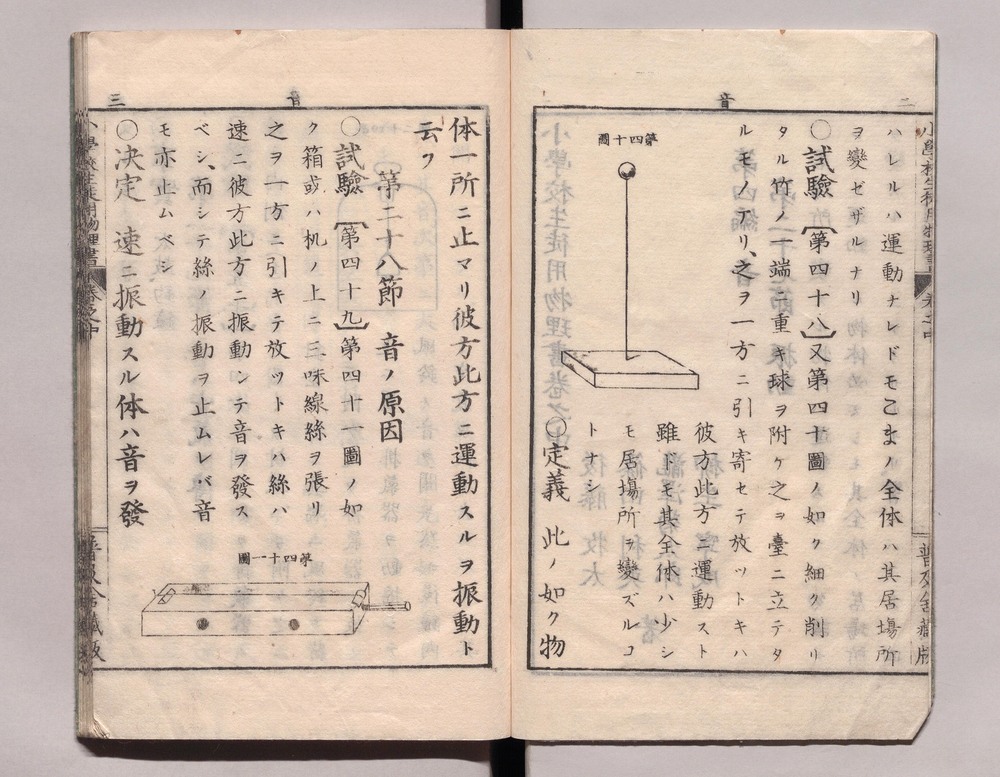 音
二
ハレルハ運動ナレドモ乙まノ全体ハ其居塲所
ヲ變ゼザルナリ
〇試驗【第四十八】又第四十圖ノ如ク細ク削リ
タル竹ノ一端ニ重キ球ヲ附ケ之ヲ臺ニ立テタ
ルモノアリ、之ヲ一方ニ引キ寄セテ放ツトキハ
彼方此方ニ運動スト
雖ドモ其全体ハ少シ
モ居塲所ヲ變ズルコ
トナシ
第四十圖
〇定義 此ノ如ク物
普及舎藏版
音
三
体一所ニ止マリ彼方此方ニ運動スルヲ振動ト
云フ
第二十八節 音ノ原因
〇試驗【第四十九】第四十一圖ノ如
ク箱或ハ机ノ上ニ三味線絲ヲ張リ
之ヲ一方ニ引キテ放ツトキハ絲ハ
速ニ彼方此方ニ振動シテ音ヲ發ス
ベシ、而シテ絲ノ振動ヲ止ムレバ音
モ亦止ムベシ
第四十一圖
〇決定 速ニ振動スル体ハ音ヲ發